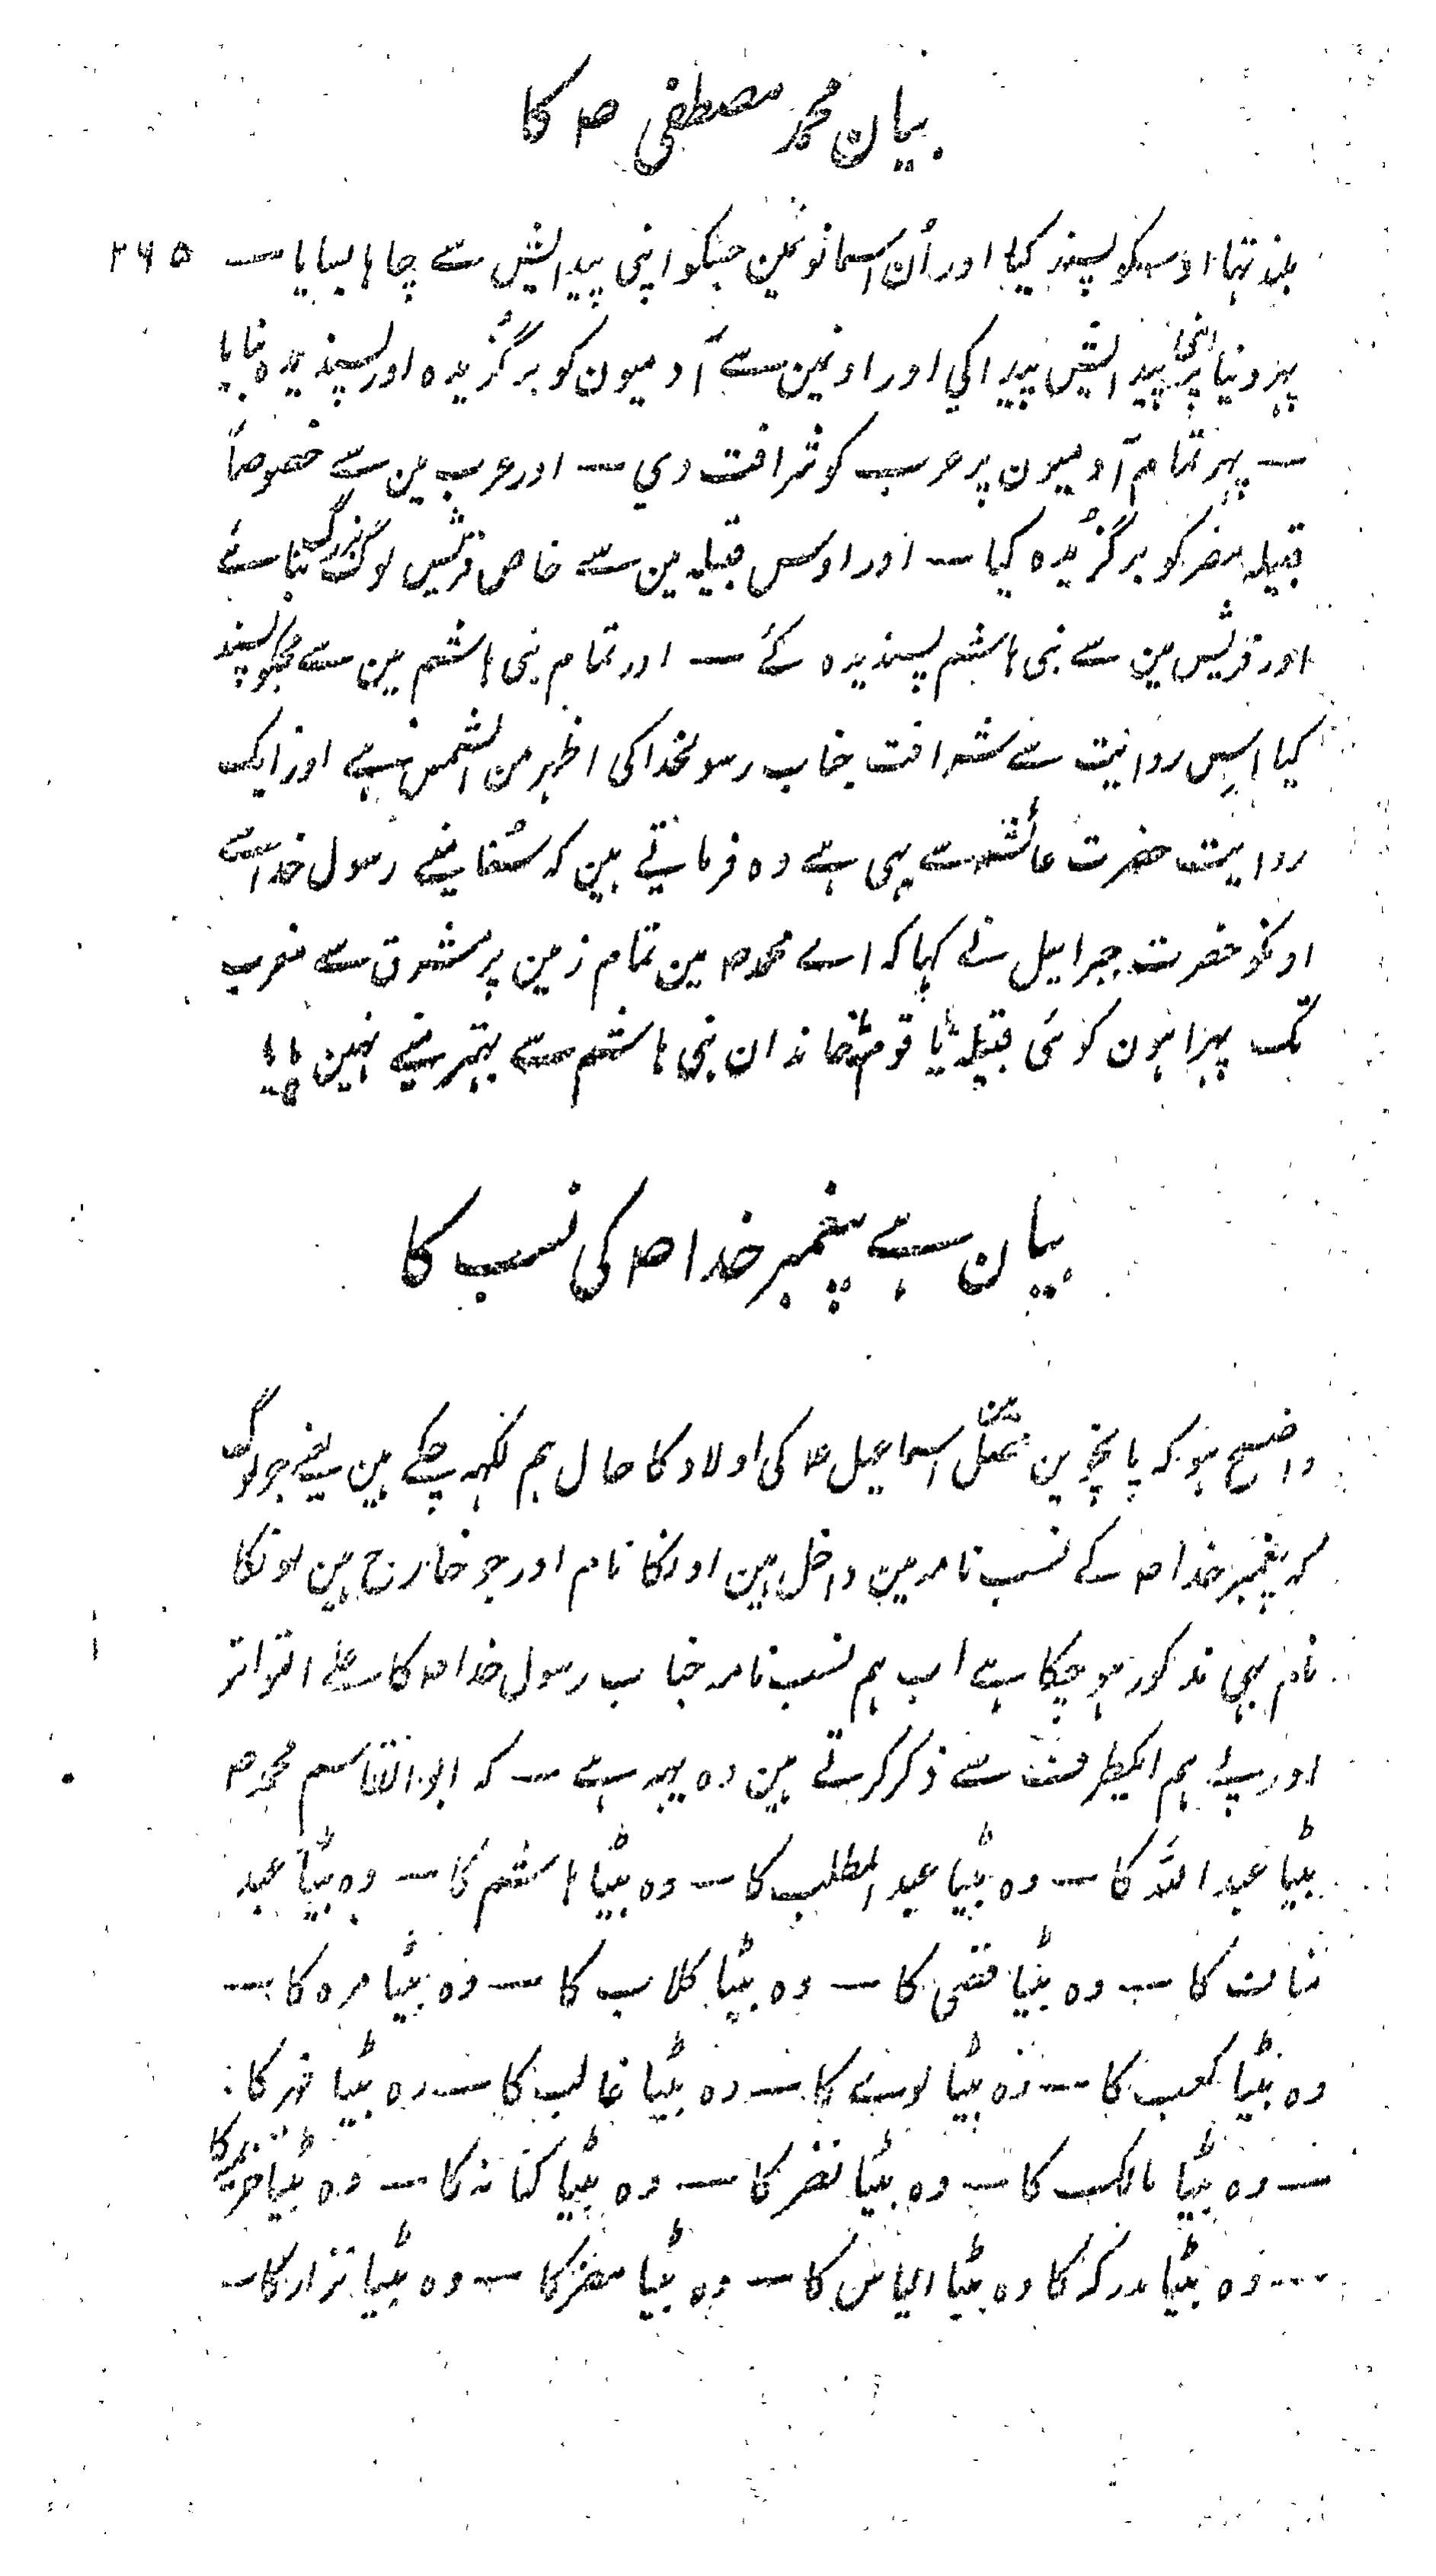 بیان محمد مصطفی ص کا
۲۶۵
بلند تہا اوسکو پسند کیا اور اُن اسمانونمین جسکو اپنی پیدایش سے چاہا بسایا —
پہر دنیا پر اپنی پیدایش پیدا کی اور اونمین سے آدمیون کو برگزیدہ اور پسندیدہ بنایا
— پہر تمام آدمیون پر عرب کو شرافت دی — اور عرب مین سے خصوصاً
قبیلہ مضر کو برگزیدہ کیا — اور اوس قبیلہ مین سے خاص قریش لوگ بزرگ بنائے
اور قریش مین سے بنی ہاشم پسندیدہ کئے — اور تمام بنی ہاشم مین سے مجکو پسند
کیا اس روایت سے شرافت جناب رسولخدا کی اظہر من الشمس ہے اور ایک
روایت حضرت عائشہ سے یہی ہے وہ فرماتے ہین کہ سُنا مینے رسول خدا سے
اونکو حضرت جبرایل نے کہا کہ اے محمد ص مین تمام زمین پر مشرق سے مغرب
تک پہرا ہون کوئی قبیلہ یا قوم خاندان بنی ہاشم سے بہتر مینے نہین پایا
بیان ہے پیغمبر خدا ص کی نسب کا
واضح ہو کہ پانچوین فصل مین اسماعیل ع کی اولاد کا حال ہم لکہہ چکے ہین یعنے جو لوگ
کہ پیغمبر خدا ص کے نسب نامہ مین داخل ہین اونکا نام اور جو خارج ہین اونکا
نام بہی مذکور ہو چکا ہے اب ہم نسب نامہ جناب رسول خدا ص کا علے التواتر
اور پے ہم ایکطرف سے ذکر کرتے ہین وہ یہہ ہے — کہ ابو القاسم محمد ص
بیٹا عبد اللہ کا — وہ بیٹا عبد المطلب کا — وہ بیٹا ہاشم کا — وہ بیٹا عبد
مناف کا — وہ بیٹا قصی کا — وہ بیٹا کلاب کا — وہ بیٹا مرہ کا —
وہ بیٹا کعب کا — وہ بیٹا لوے کا — وہ بیٹا غالب کا — وہ بیٹا فہر کا
— وہ بیٹا مالک کا — وہ بیٹا نضر کا — وہ بیٹا کنانہ کا — وہ بیٹا خزیمہ کا
— وہ بیٹا مدرکہ کا وہ بیٹا الیاس کا — وہ بیٹا مضر کا — وہ بیٹا نزار کا —